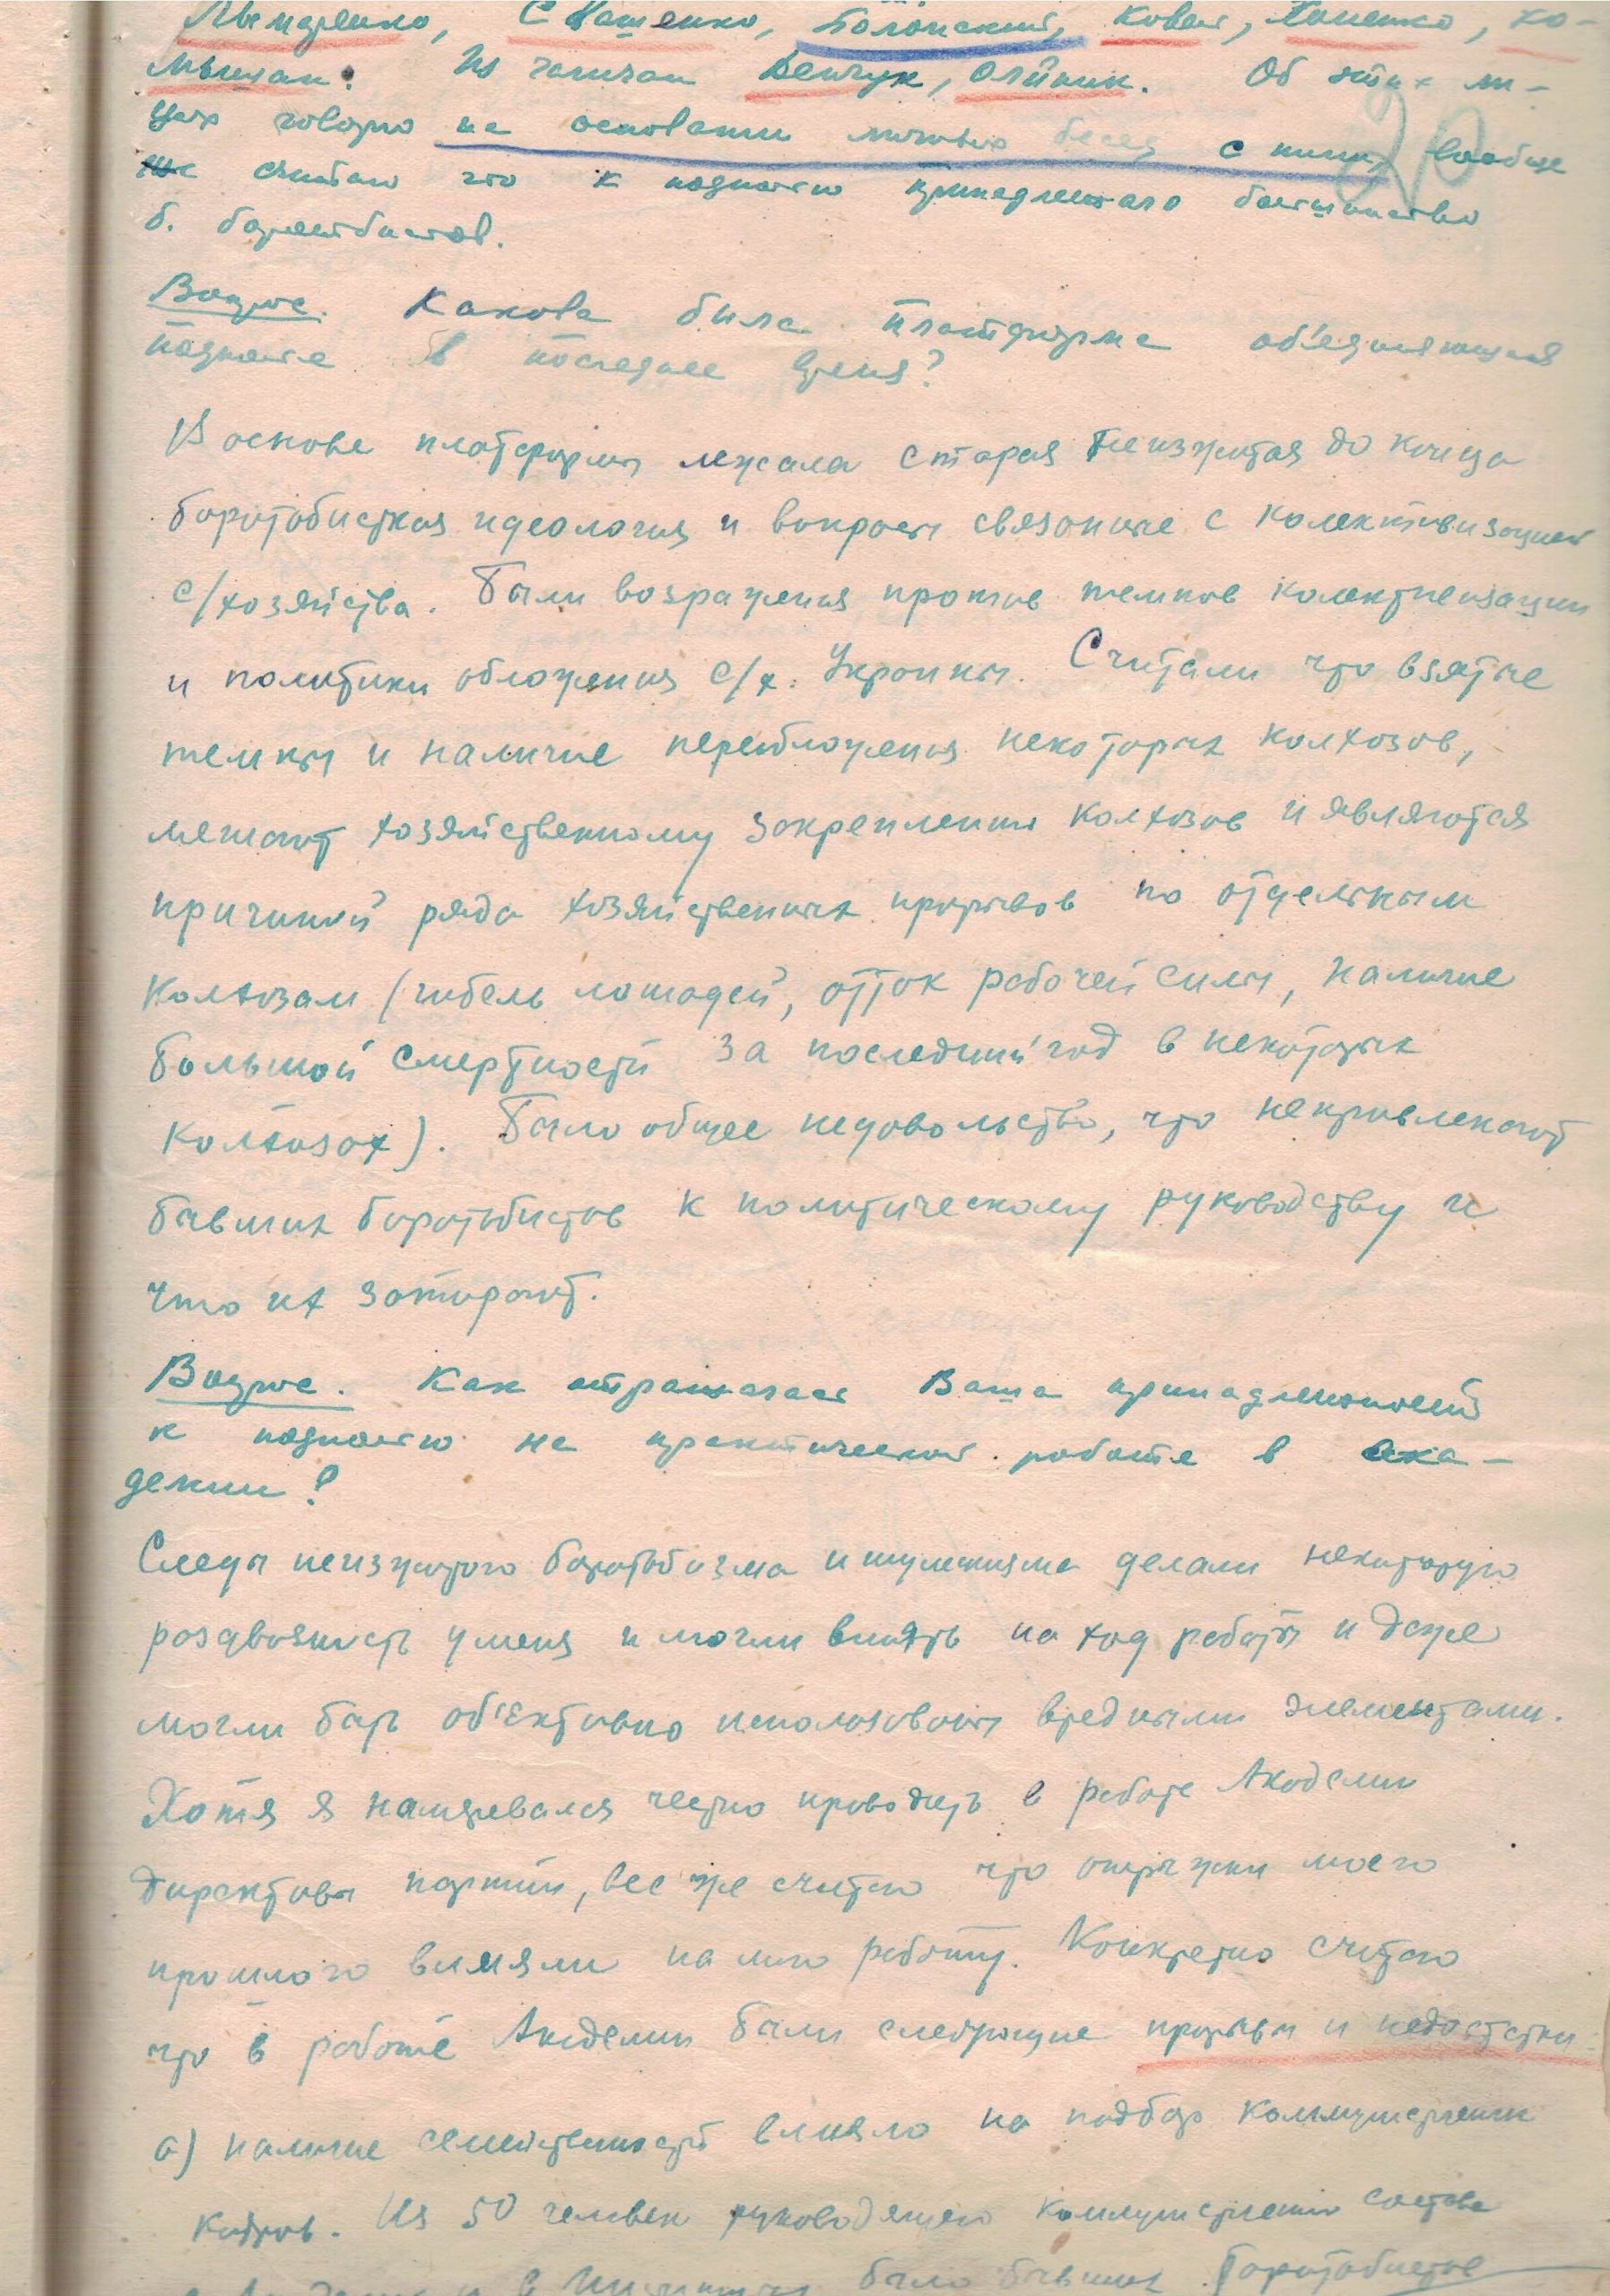 С Ващенко, Полонский, Ковал,
мышан. Из галичан Демчук, Олійник. Об этих ли-
цах говорю на основании личных бесед с ними, вообще
же считаю что к подполью принадлежало большинство
б. боротьбистов.
20
Вопрос. Какова была платформа об'единяющая
подполье в последнее время?
В основе платформы лежала старая неизжитая до конца
боротьбистская идеология и вопросы связаные с колективизацией
с/хозяйства. Были возражения против темпов колективизации
и политики обложения с/х. Украины. Считали что взятые
темпы и наличие переобложения некоторых колхозов,
мешают хозяйственному закреплению колхозов и являются
причиной ряда хозяйственных прорывов по отдельным
колхозам (гибель лошадей, отток рабочей силы, наличие
большой смертности за последний год в некоторых
колхозах). Было общее недовольство, что непривлекают
бывших боротьбистов к политическому руководству и
что их затирают.
Вопрос. Как отражалась Ваша принадлежность
к подполью на практической работе в Ака-
демии?
Следы неизжитого боротьбизма и шумскизма делали некоторую
раздвояность у меня и могли влиять на ход работы и даже
могли быть об'ективно использованы вредными элементами.
Хотя я намеревался честно проводить в работе Академии
директивы партии, все же считаю что отрыжки моего
прошлого влияли на мою работу. Конкретно считаю
что в работе Академии были следующие прорывы и недостатки:
а) наличие семейственности влияло на подбор коммунистических
кадров. Из 50 человек руководящего коммунистического состава
в было бывших боротьбистов